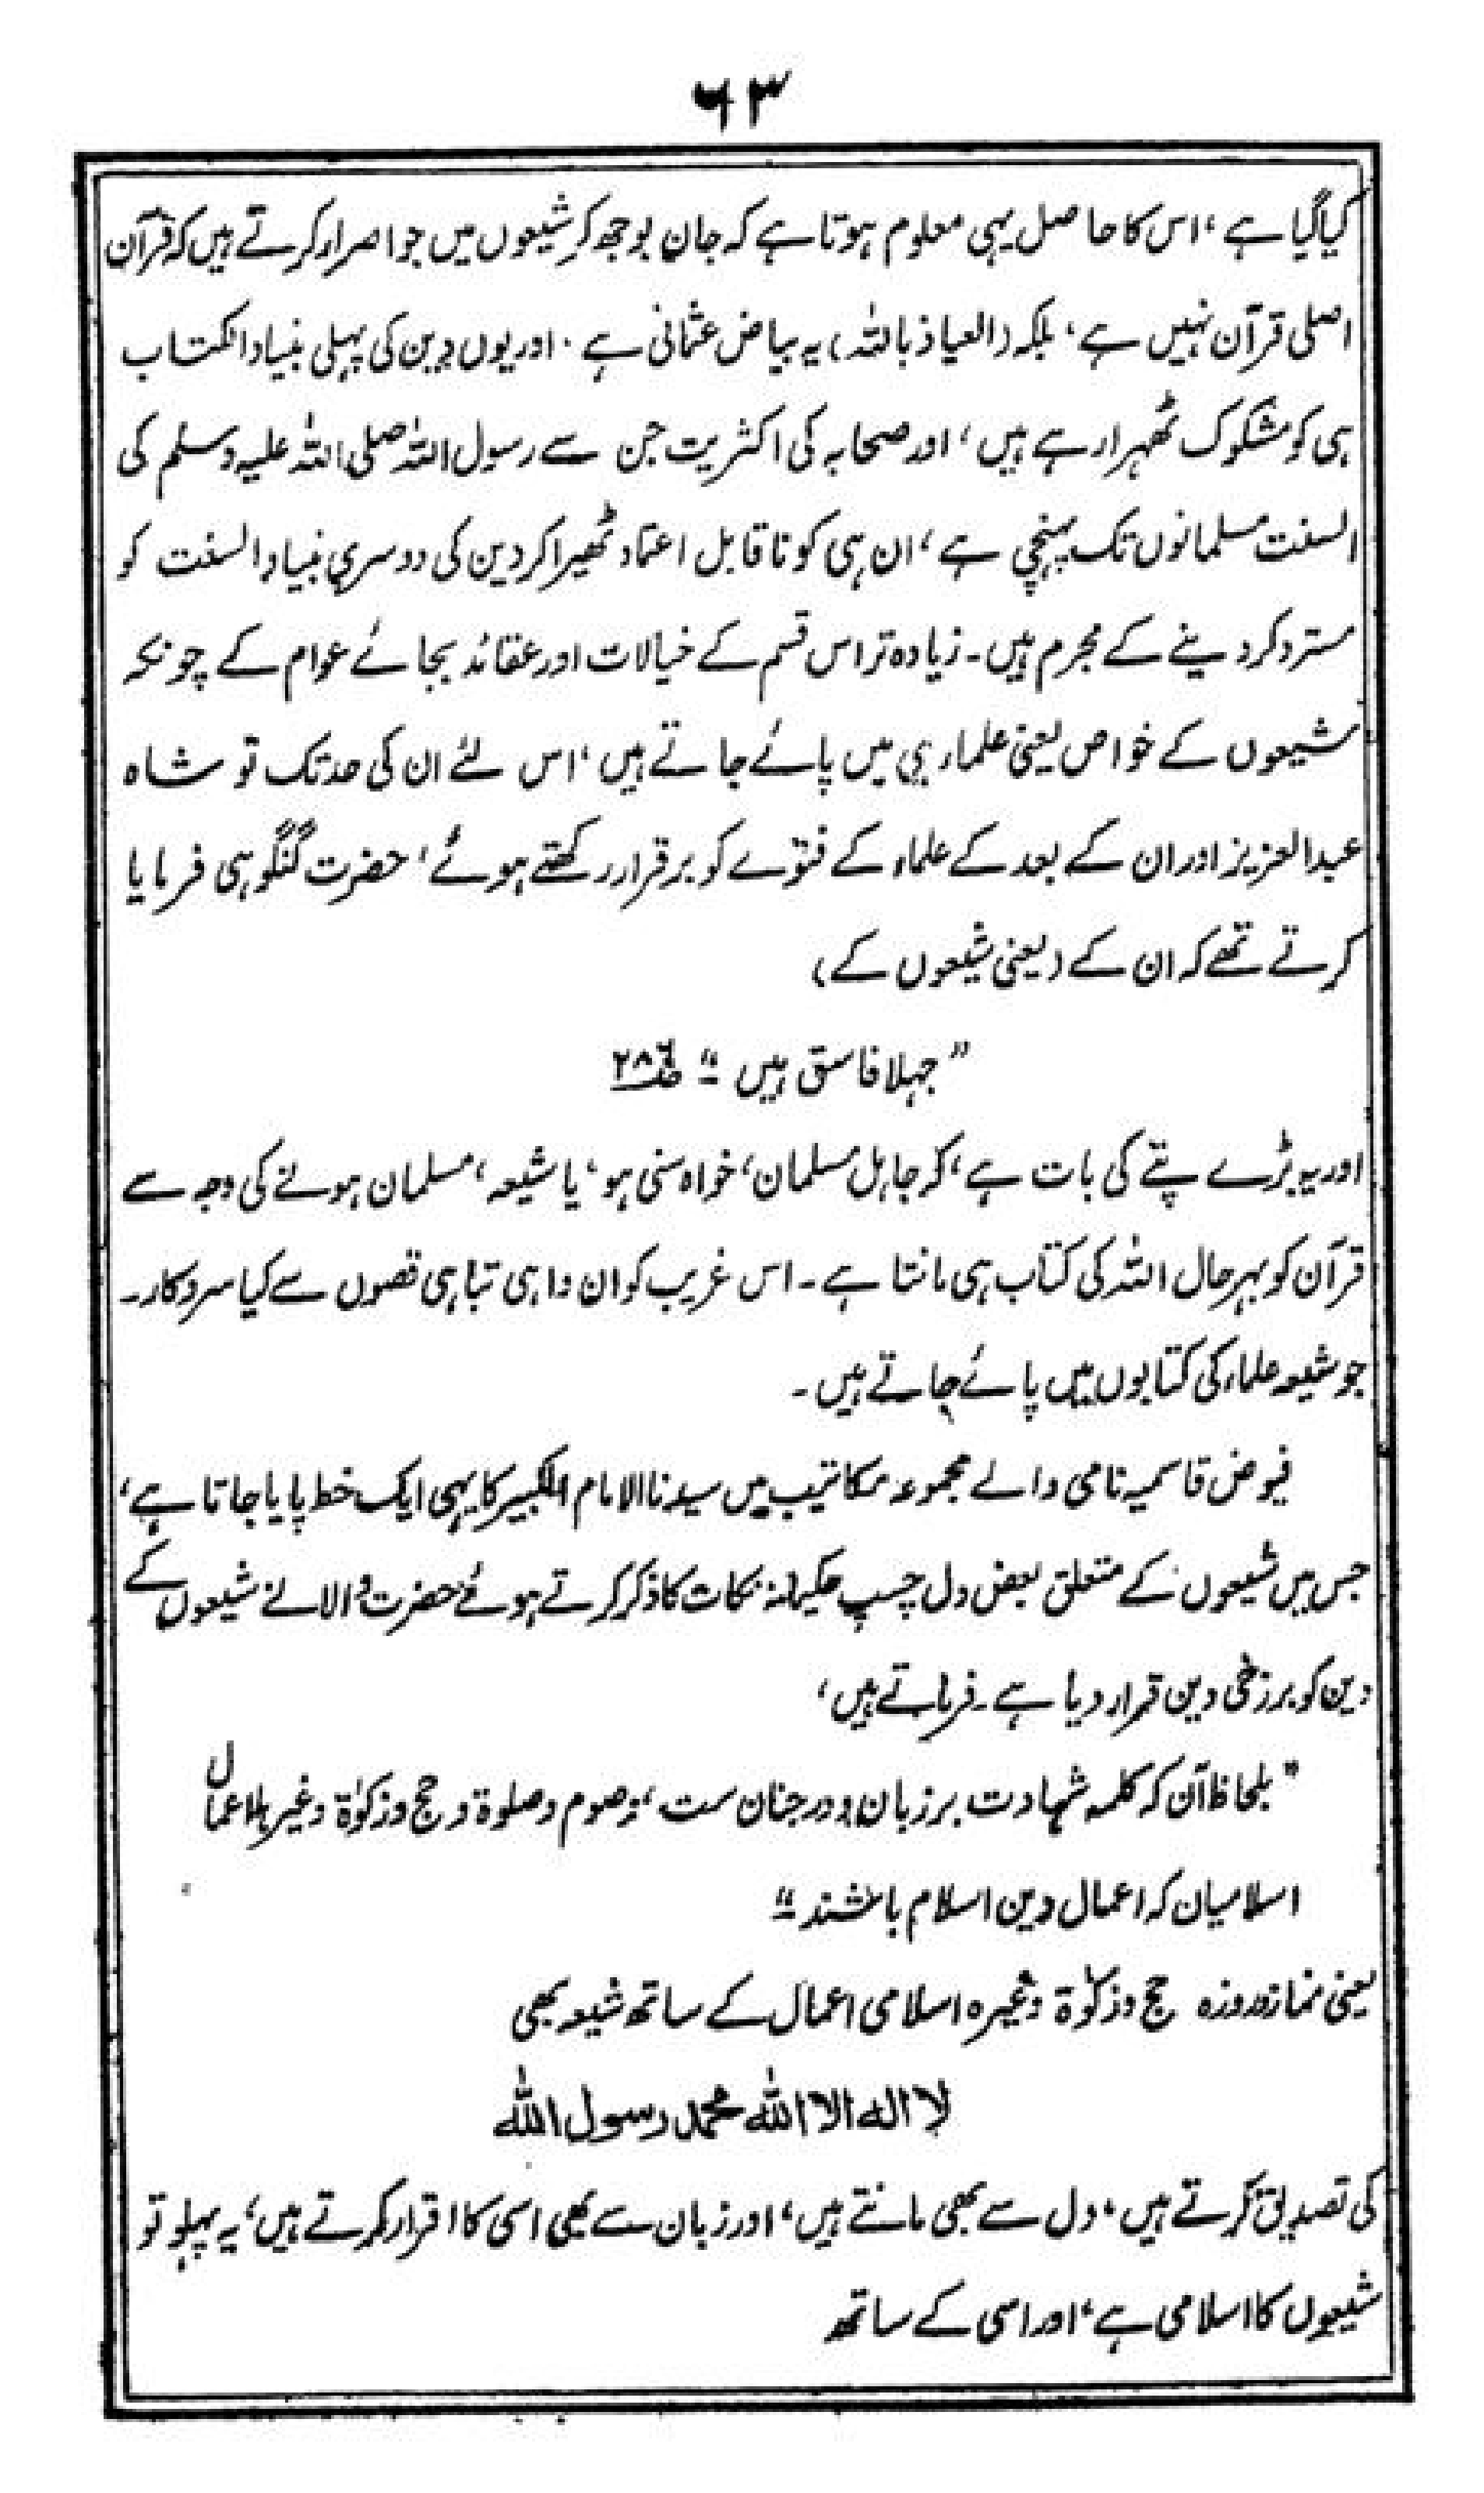 ۶۳
کیا گیا ہے، اس کا حاصل یہی معلوم ہوتا ہے کہ جان بوجھ کر شیعوں میں جو اصرار کرتے ہیں کہ قرآن
اصلی قرآن نہیں ہے، بلکہ (العیاذ باللہ) یہ بیاض عثمانی ہے۔ اور یوں دین کی پہلی بنیاد الکتاب
ہی کو مشکوک ٹھہرا رہے ہیں، اور صحابہ کی اکثریت جن سے رسول اللہ صلی اللہ علیہ وسلم کی
السنت مسلمانوں تک پہنچی ہے، ان ہی کو نا قابل اعتماد ٹھیرا کر دین کی دوسری بنیاد السنت کو
مسترد کر دینے کے مجرم ہیں۔ زیادہ تر اس قسم کے خیالات اور عقائد بجائے عوام کے چونکہ
شیعوں کے خواص یعنی علماء ہی میں پائے جاتے ہیں، اس لئے ان کی حد تک تو شاہ
عبدالعزیز اور ان کے بعد کے علماء کے فتوے کو برقرار رکھتے ہوئے، حضرت گنگوہی فرمایا
کرتے تھے کہ ان کے (یعنی شیعوں کے)
”جہلا فاسق ہیں“ ص۲۸۶
اور یہ بڑے پتے کی بات ہے، کہ جاہل مسلمان، خواہ سنی ہو، یا شیعہ، مسلمان ہونے کی وجہ سے
قرآن کو بہرحال اللہ کی کتاب ہی مانتا ہے۔ اس غریب کو ان واہی تباہی قصوں سے کیا سروکار۔
جو شیعہ علماء کی کتابوں میں پائے جاتے ہیں۔
فیوض قاسمیہ نامی والے مجموعہ مکاتیب میں سیدنا الامام الکبیر کا یہی ایک خط پایا جاتا ہے،
جس میں شیعوں کے متعلق بعض دل چسپ حکیمانہ نکات کا ذکر کرتے ہوئے حضرت والا نے شیعوں کے
دین کو برزخی دین قرار دیا ہے۔ فرماتے ہیں،
”بلحاظ آن کہ کلمہ شہادت بر زبان و در جنان ست، وصوم وصلوۃ و حج وزکوٰۃ وغیرہا اعمال
اسلامیان کہ اعمال دین اسلام باشند“
یعنی نماز و روزہ حج وزکوٰۃ وغیرہ اسلامی اعمال کے ساتھ شیعہ بھی
لا الہ الا اللہ محمد رسول اللہ
کی تصدیق کرتے ہیں، دل سے بھی مانتے ہیں، اور زبان سے بھی اسی کا اقرار کرتے ہیں، یہ پہلو تو
شیعوں کا اسلامی ہے، اور اسی کے ساتھ